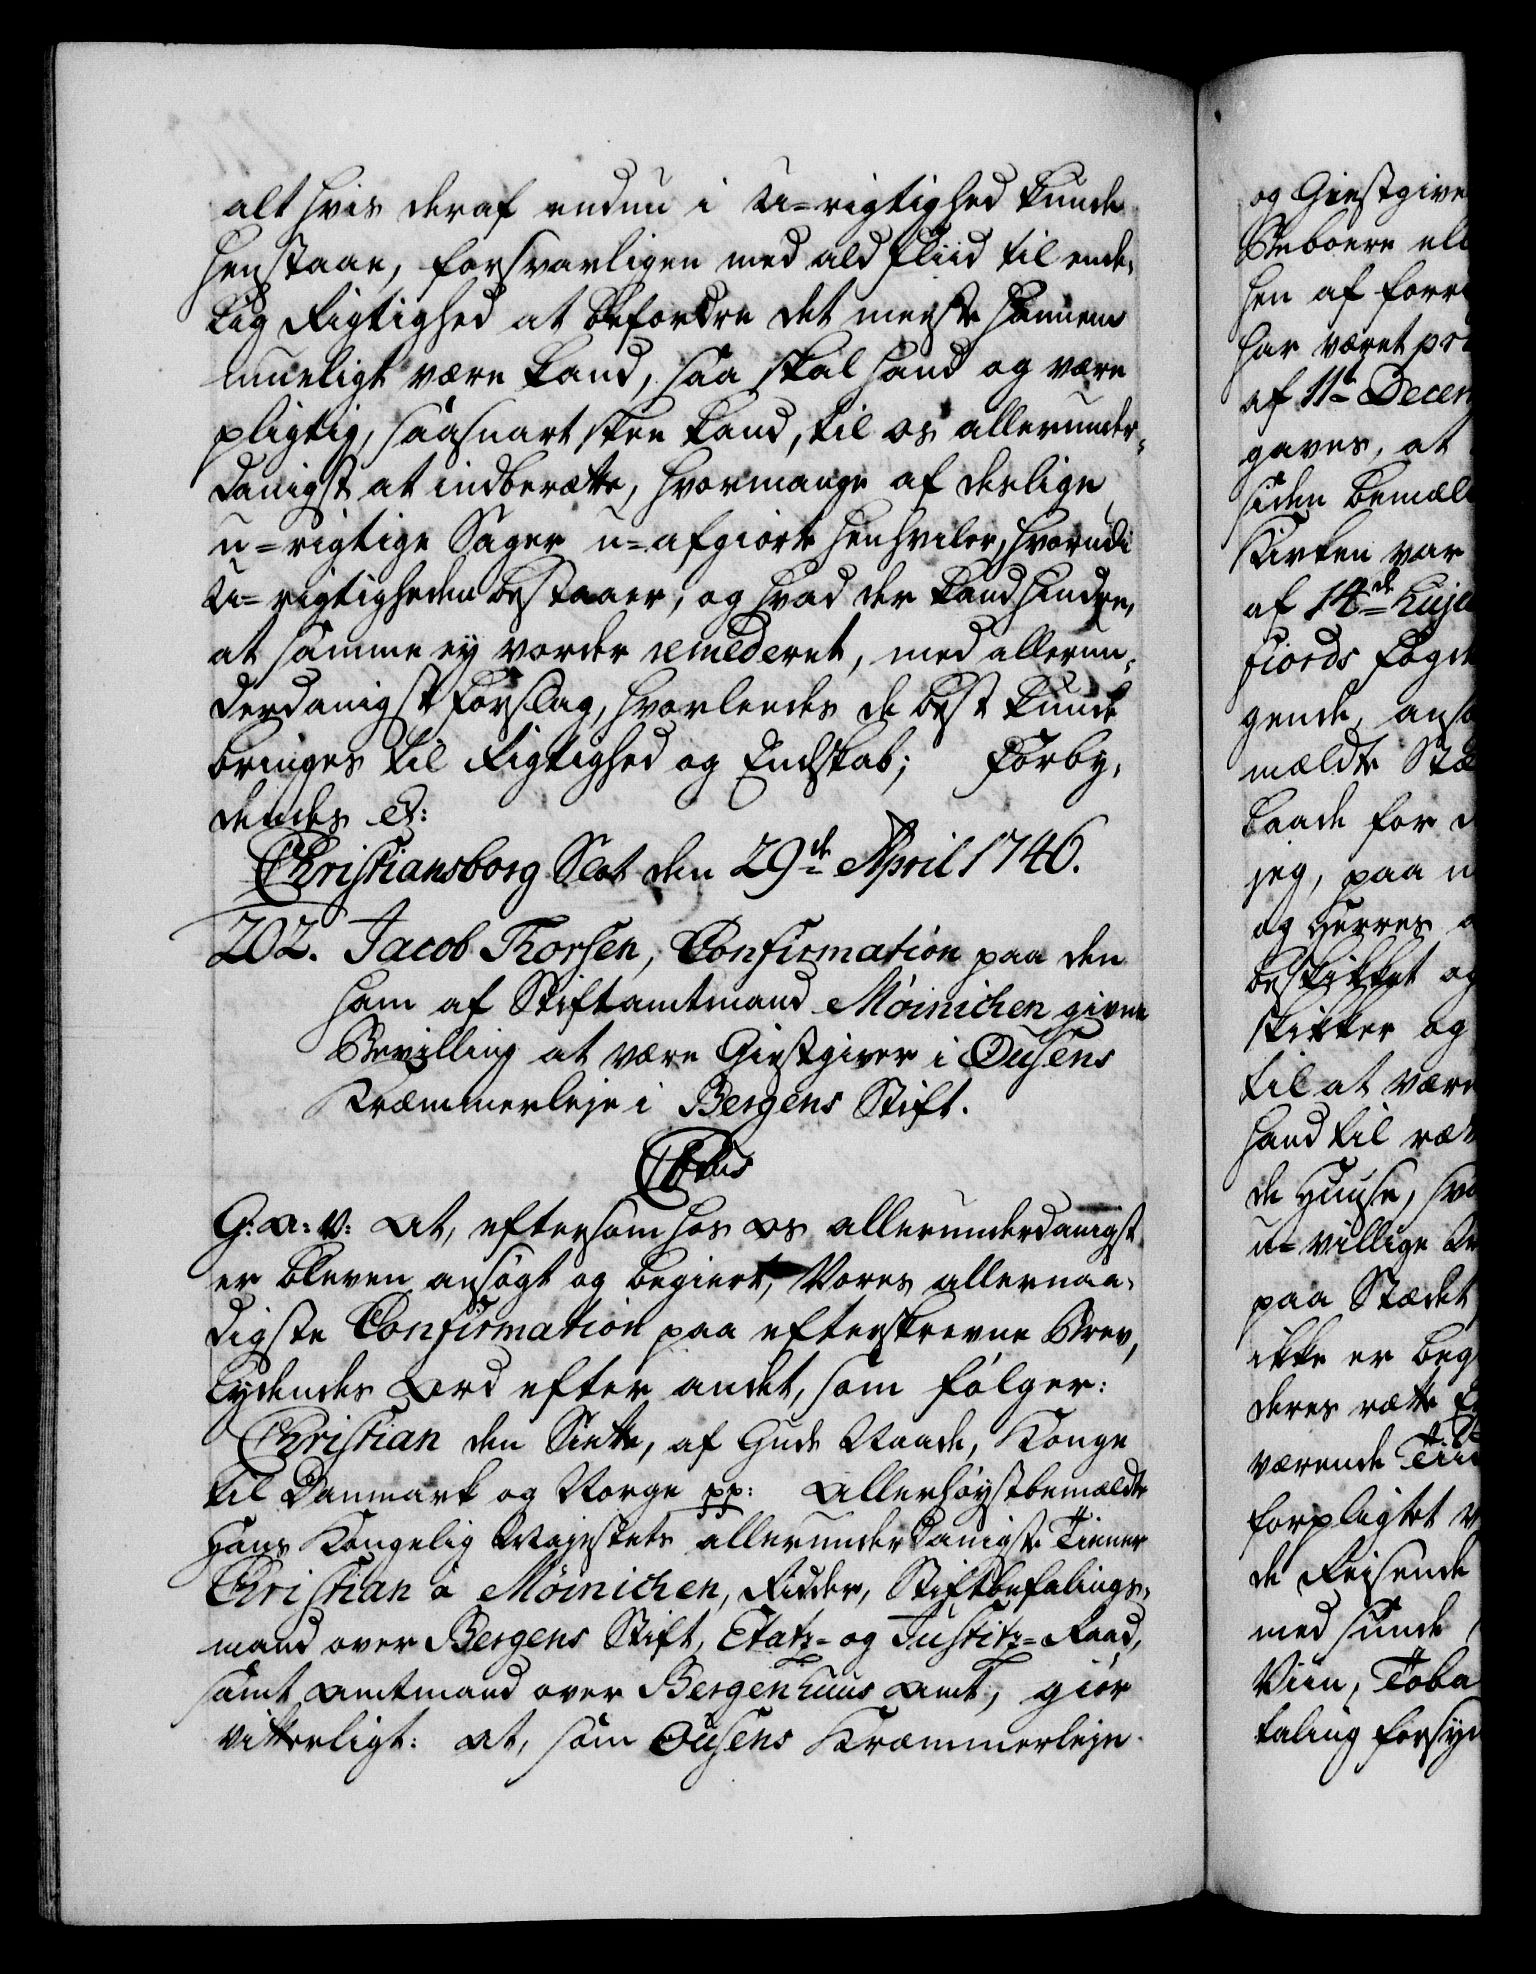 alt hvis deraf endnu i U=rigtighed kunde
henstaae, forsvarligen med ald fliid til ende-
lig Rigtighed at befordre det meeste hannem
mueligt være kand, saa skal hand og være
pligtig, saasnart skee kand, til os allerunder-
danigst at indberætte, hvormange af deslige
u=rigtige Sager u=afgiorte henhviler, hvorudi
U=rigtigheden bestaaer, og hvad der kand hindre,
at samme ey vorder remederet, med allerun-
derdanigst Forslag, hvorleedes de best kunde
bringes til Rigtighed og Endskab; Forby-
dendes &:
Christiansborg Slot den 29de April 1746.
202. Jacob Thorsen, Confirmation paa den
ham af Stiftamtmand Møinichen givne
Bevilling at være Giestgiver i Ousens
Kræmmerleje i Bergens Stift.
C6tus
G: A: V: At, eftersom hos os allerunderdanigst
er bleven ansøgt og begiert, Vores allernaa-
digste Confirmation paa efterskrevne Brev,
lydendes Ord efter andet, som følger:
Christian den Siette, af Guds Naade, Konge
til Danmark og Norge pp: Allerhøystbemældte
Hans Kongelig Majestets allerunderdanigste Tiener
Christian à Møinichen, Ridder, Stiftbefalings-
mand over Bergens Stift, Etatz= og Justitz=Raad,
samt Amtmand over Bergenhuus Amt, giør
vitterligt: At, som Ousens Kræmmerleje
og Giestgive
Beboere ell
hen af forr
har været pr
af 11te Decem
gaves, at
siden bemæl
Kirken var
af 14de Huju
fiords Fogde
gende, ans
mældte Stæ
baade for d
jeg, paa
og Herres
beskikket og
skikker og
til at være
hand til ræ
de Huuse, sv
u=villige
paa Stædet
ikke er beg
deres rætte
værende Tiid
forpligtet
de Reisende
med sunde
Viin, Toba
taling forsyn